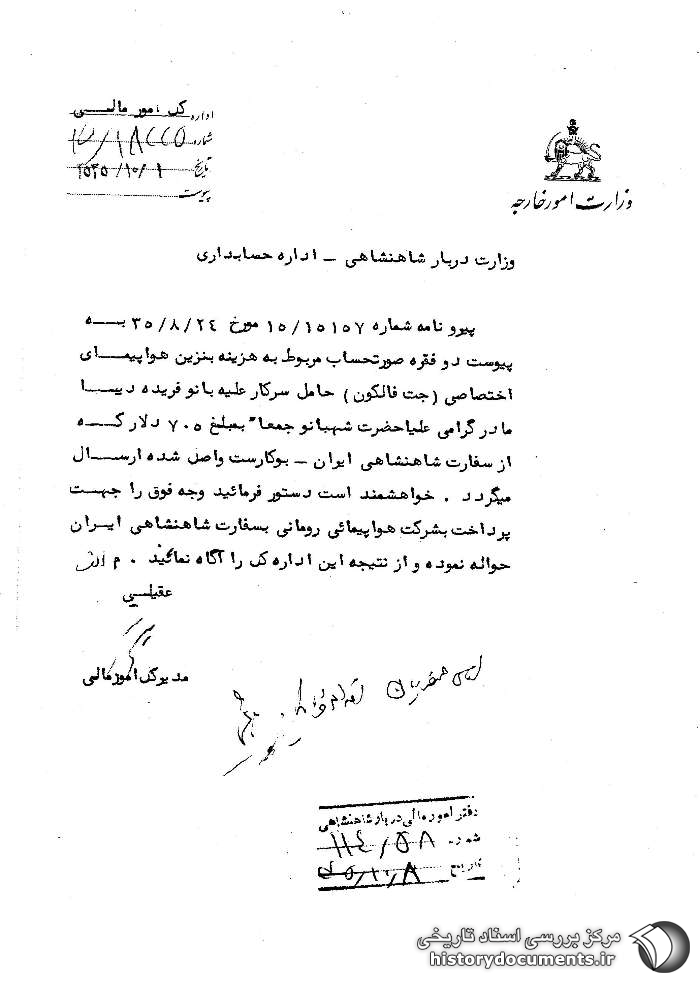 وزارت امور خارجه
اداره کل امور مالی
شماره
تاریخ ۲۵۳۵/۱۰/۱
پیوست
وزارت دربار شاهنشاهی - اداره حسابداری
پیرو نامه شماره ۱۵/۱۵۱۵۷ مورخ ۳۵/۸/۲۴ به
پیوست دو فقره صورتحساب مربوط به هزینه بنزین هواپیمای
اختصاصی (جت فالکون) حامل سرکار علیه بانو فریده دیبا
مادر گرامی علیاحضرت شهبانو جمعاً بمبلغ ۷۰۵ دلار که
از سفارت شاهنشاهی ایران - بوکارست واصل شده ارسال
میگردد . خواهشمند است دستور فرمائید وجه فوق را جهت
پرداخت بشرکت هواپیمائی رومانی بسفارت شاهنشاهی ایران
حواله نموده و از نتیجه این اداره کل را آگاه نمائید . م الف
عقیلی
مدیر کل امور مالی
دفتر امور مالی دربار شاهنشاهی
شماره
تاریخ
مرکز بررسی اسناد تاریخی
historydocuments.ir